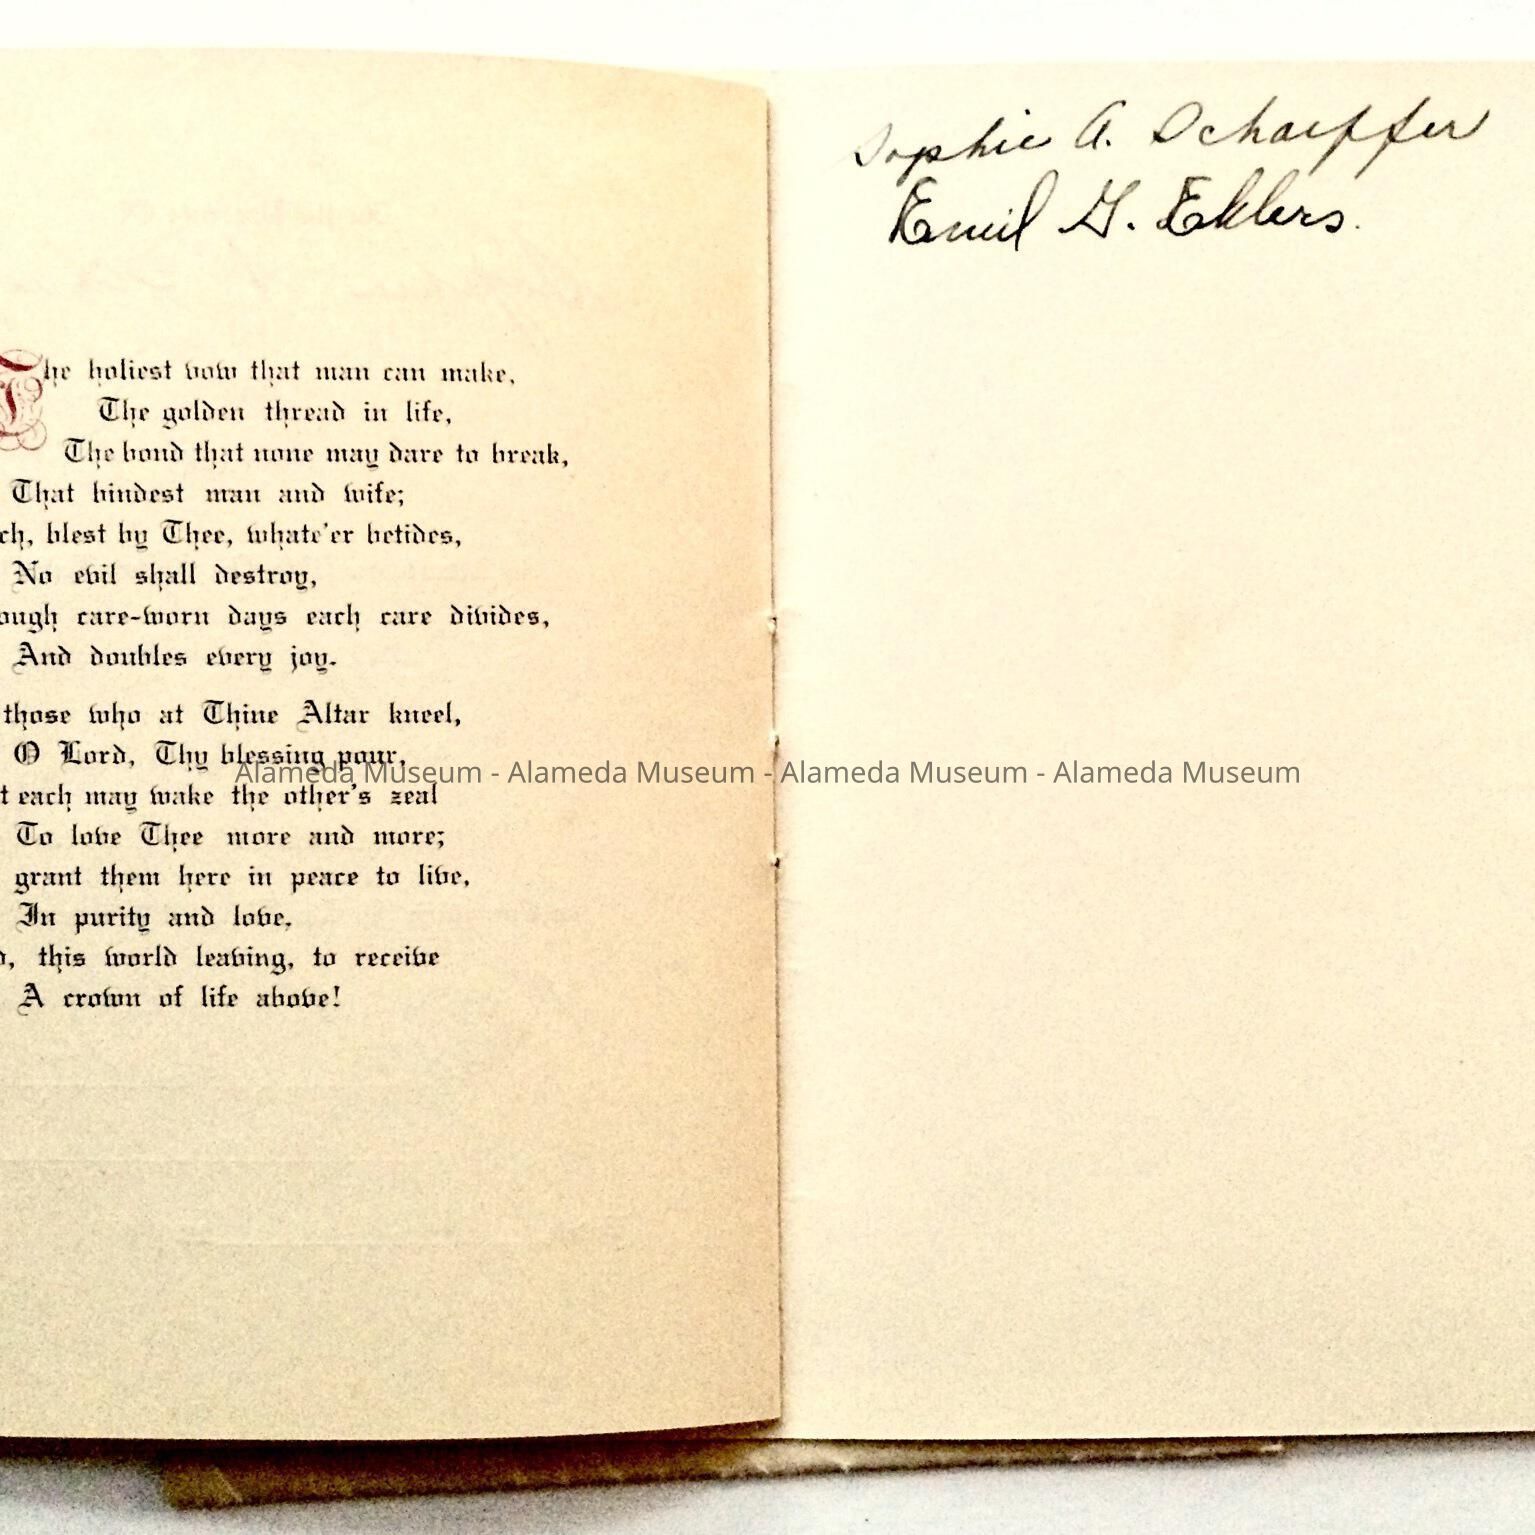 The holiest vow that man can make,
The golden thread in life,
The bond that none may dare to break,
That bindest man and wife;
ch, blest by Thee, whate'er betides,
No evil shall destroy,
ough care-worn days each care divides,
And doubles every joy.
those who at Thine Altar kneel,
O Lord, Thy blessing pour,
t each may wake the other's zeal
To love Thee more and more;
grant them here in peace to live,
In purity and love,
d, this world leaving, to receive
A crown of life above!
Sophie A. Schaeffer
Emil G. Ehlers.
Alameda Museum - Alameda Museum - Alameda Museum - Alameda Museum